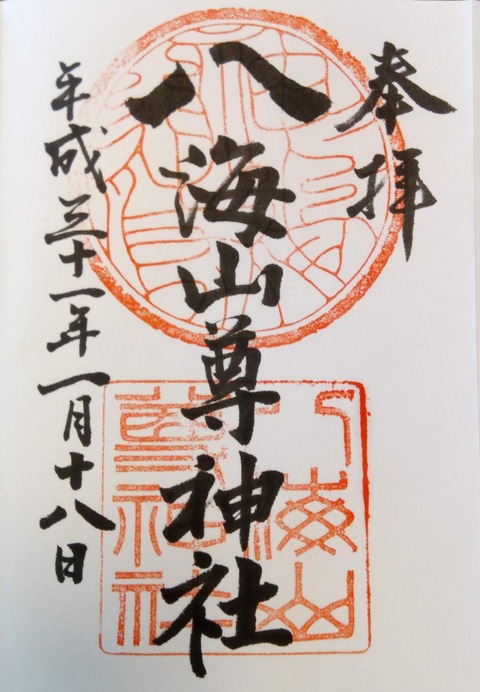 奉拝
八海山尊神社
平成三十一年一月十八日
八海山尊神社